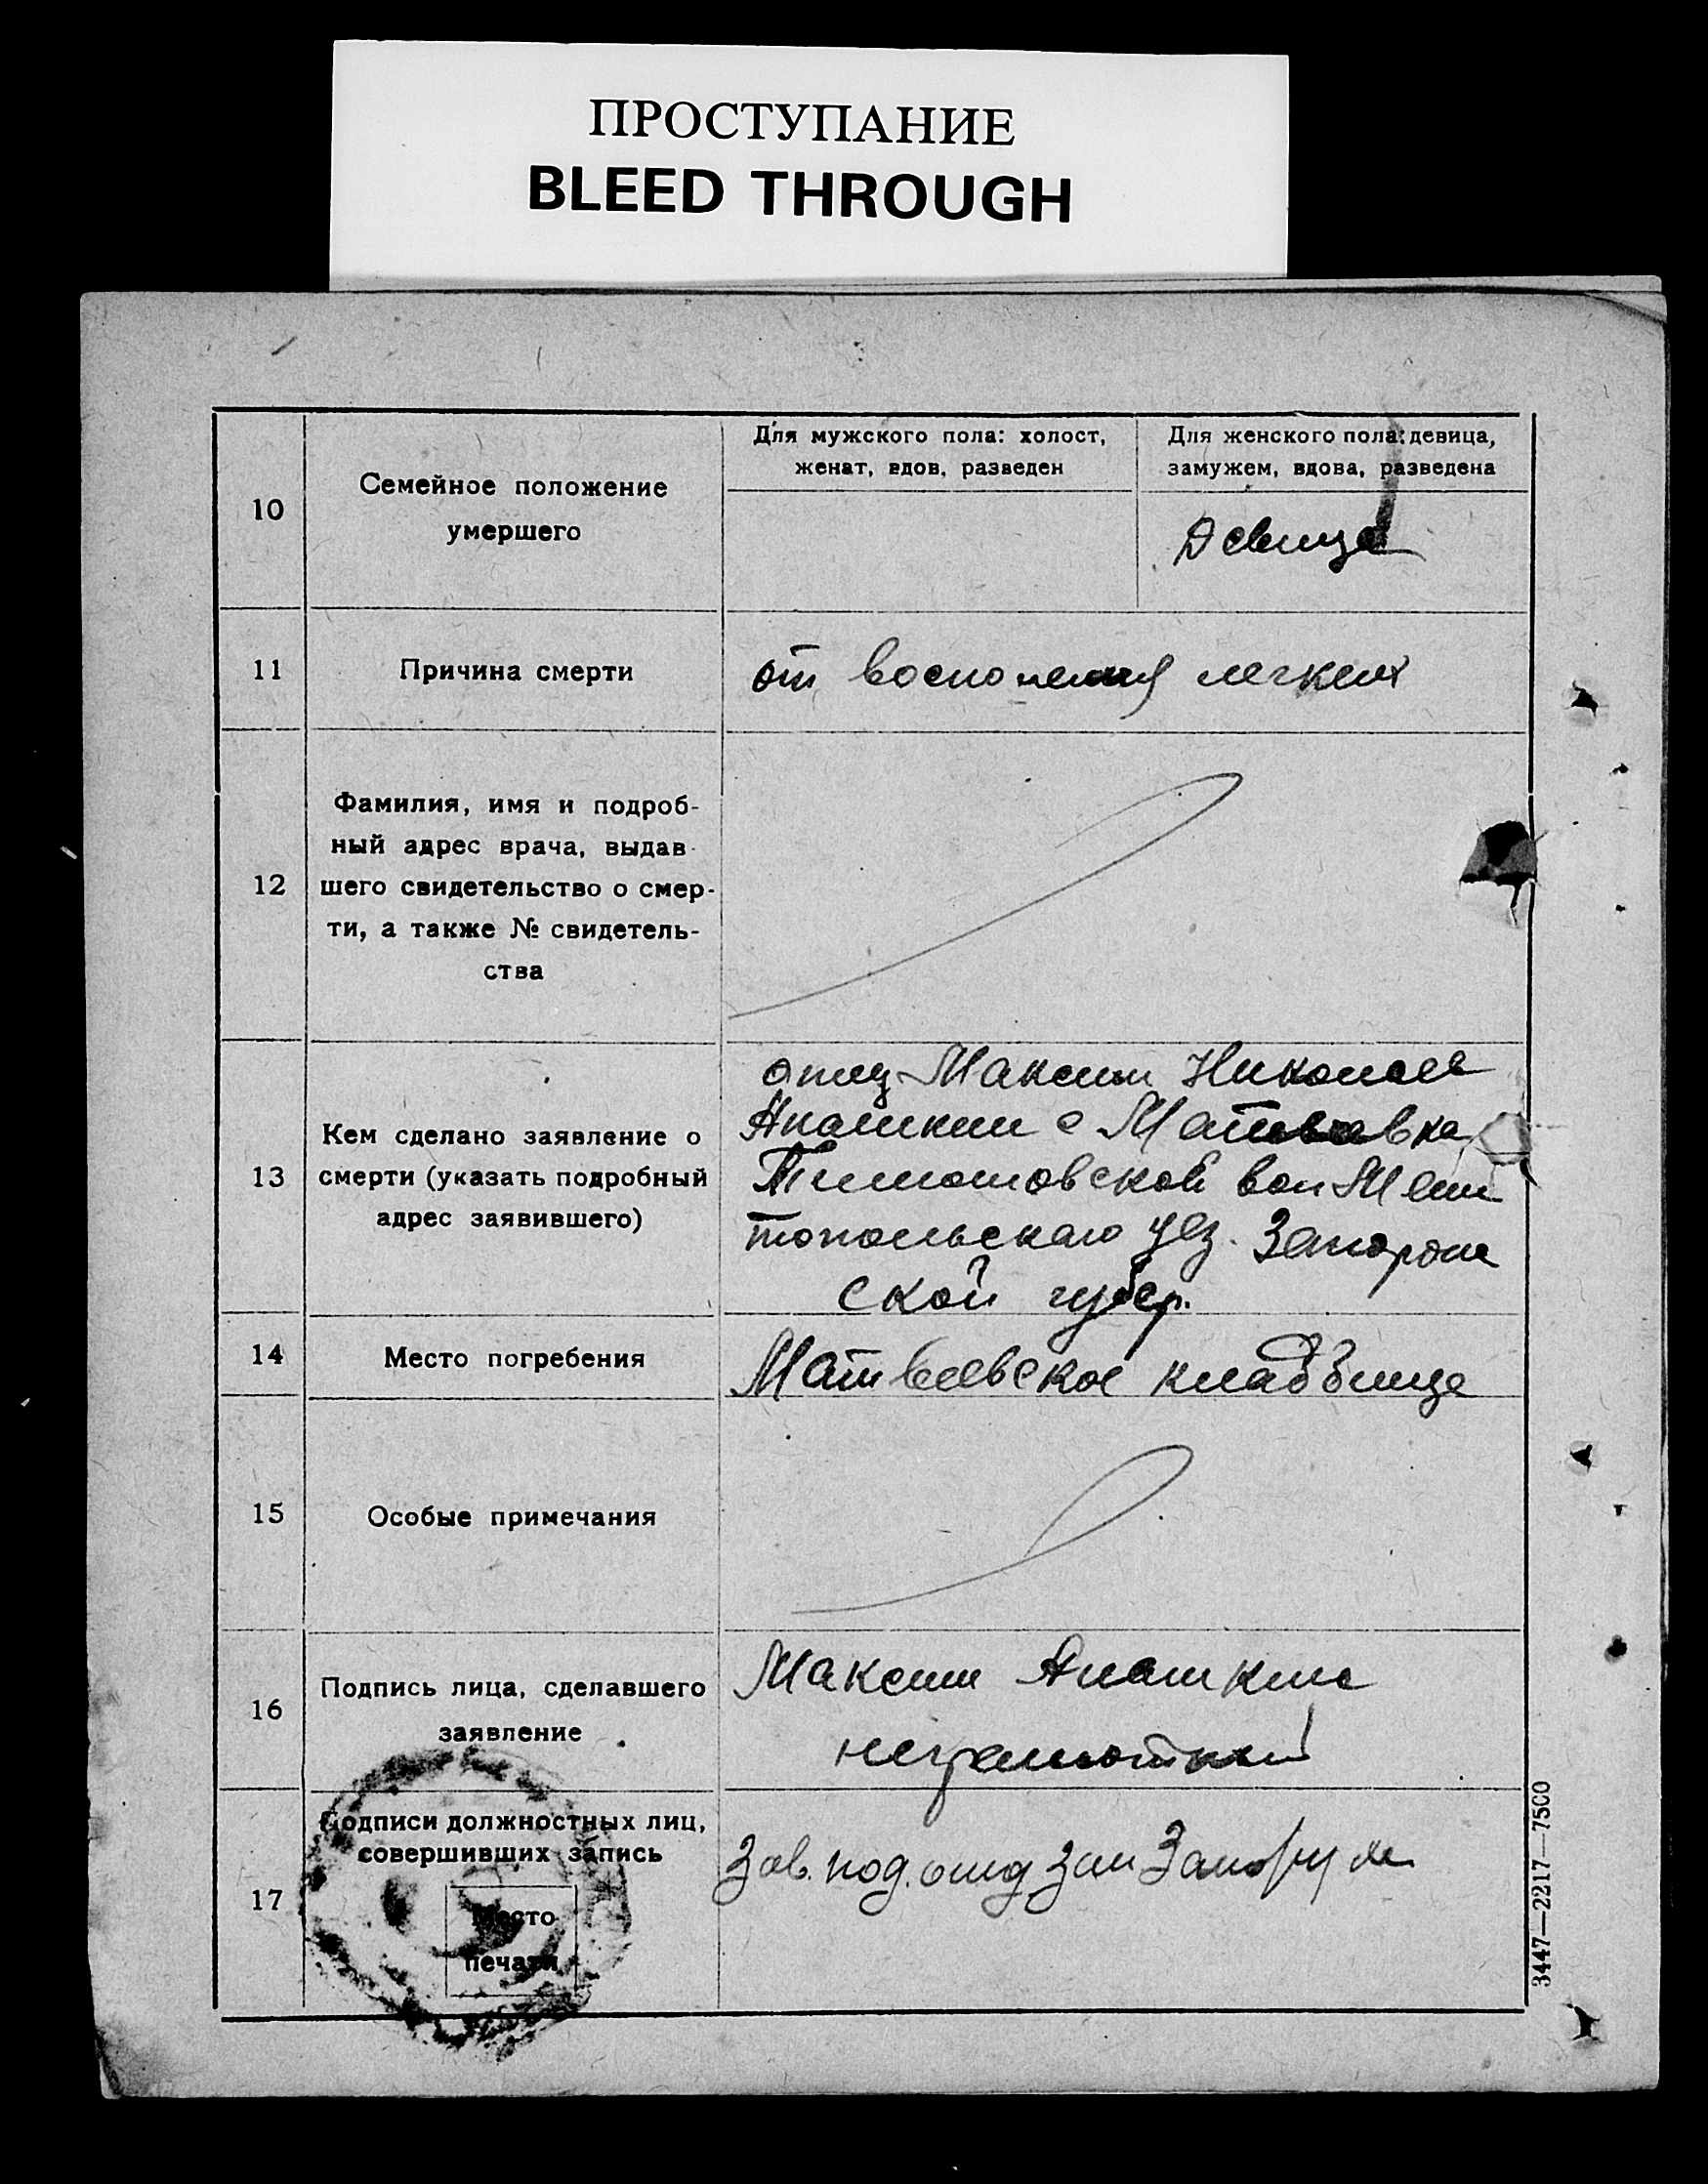 ПРОСТУПАНИЕ
BLEED THROUGH
10
Семейное положение
умершего
Для мужского пола: холост,
женат, вдов, разведен
Для женского пола: девица,
замужем, вдова, разведена
Девица
11
Причина смерти
от восполения легких
12
Фамилия, имя и подроб-
ный адрес врача, выдав-
шего свидетельство о смер-
ти, а также № свидетель-
ства
13
Кем сделано заявление о
смерти (указать подробный
адрес заявившего)
отец Максим Николаев
Апашкин с Матвеевка
вол Мели
топольскаго уез. Запорож
ской губер.
14
Место погребения
Матвеевское кладбище
15
Особые примечания
16
Подпись лица, сделавшего
заявление
Максим Апашкин
неграмотный
17
Подписи должностных лиц,
совершивших запись
Место
печати
Зав. под. отд
3447—2217—7500